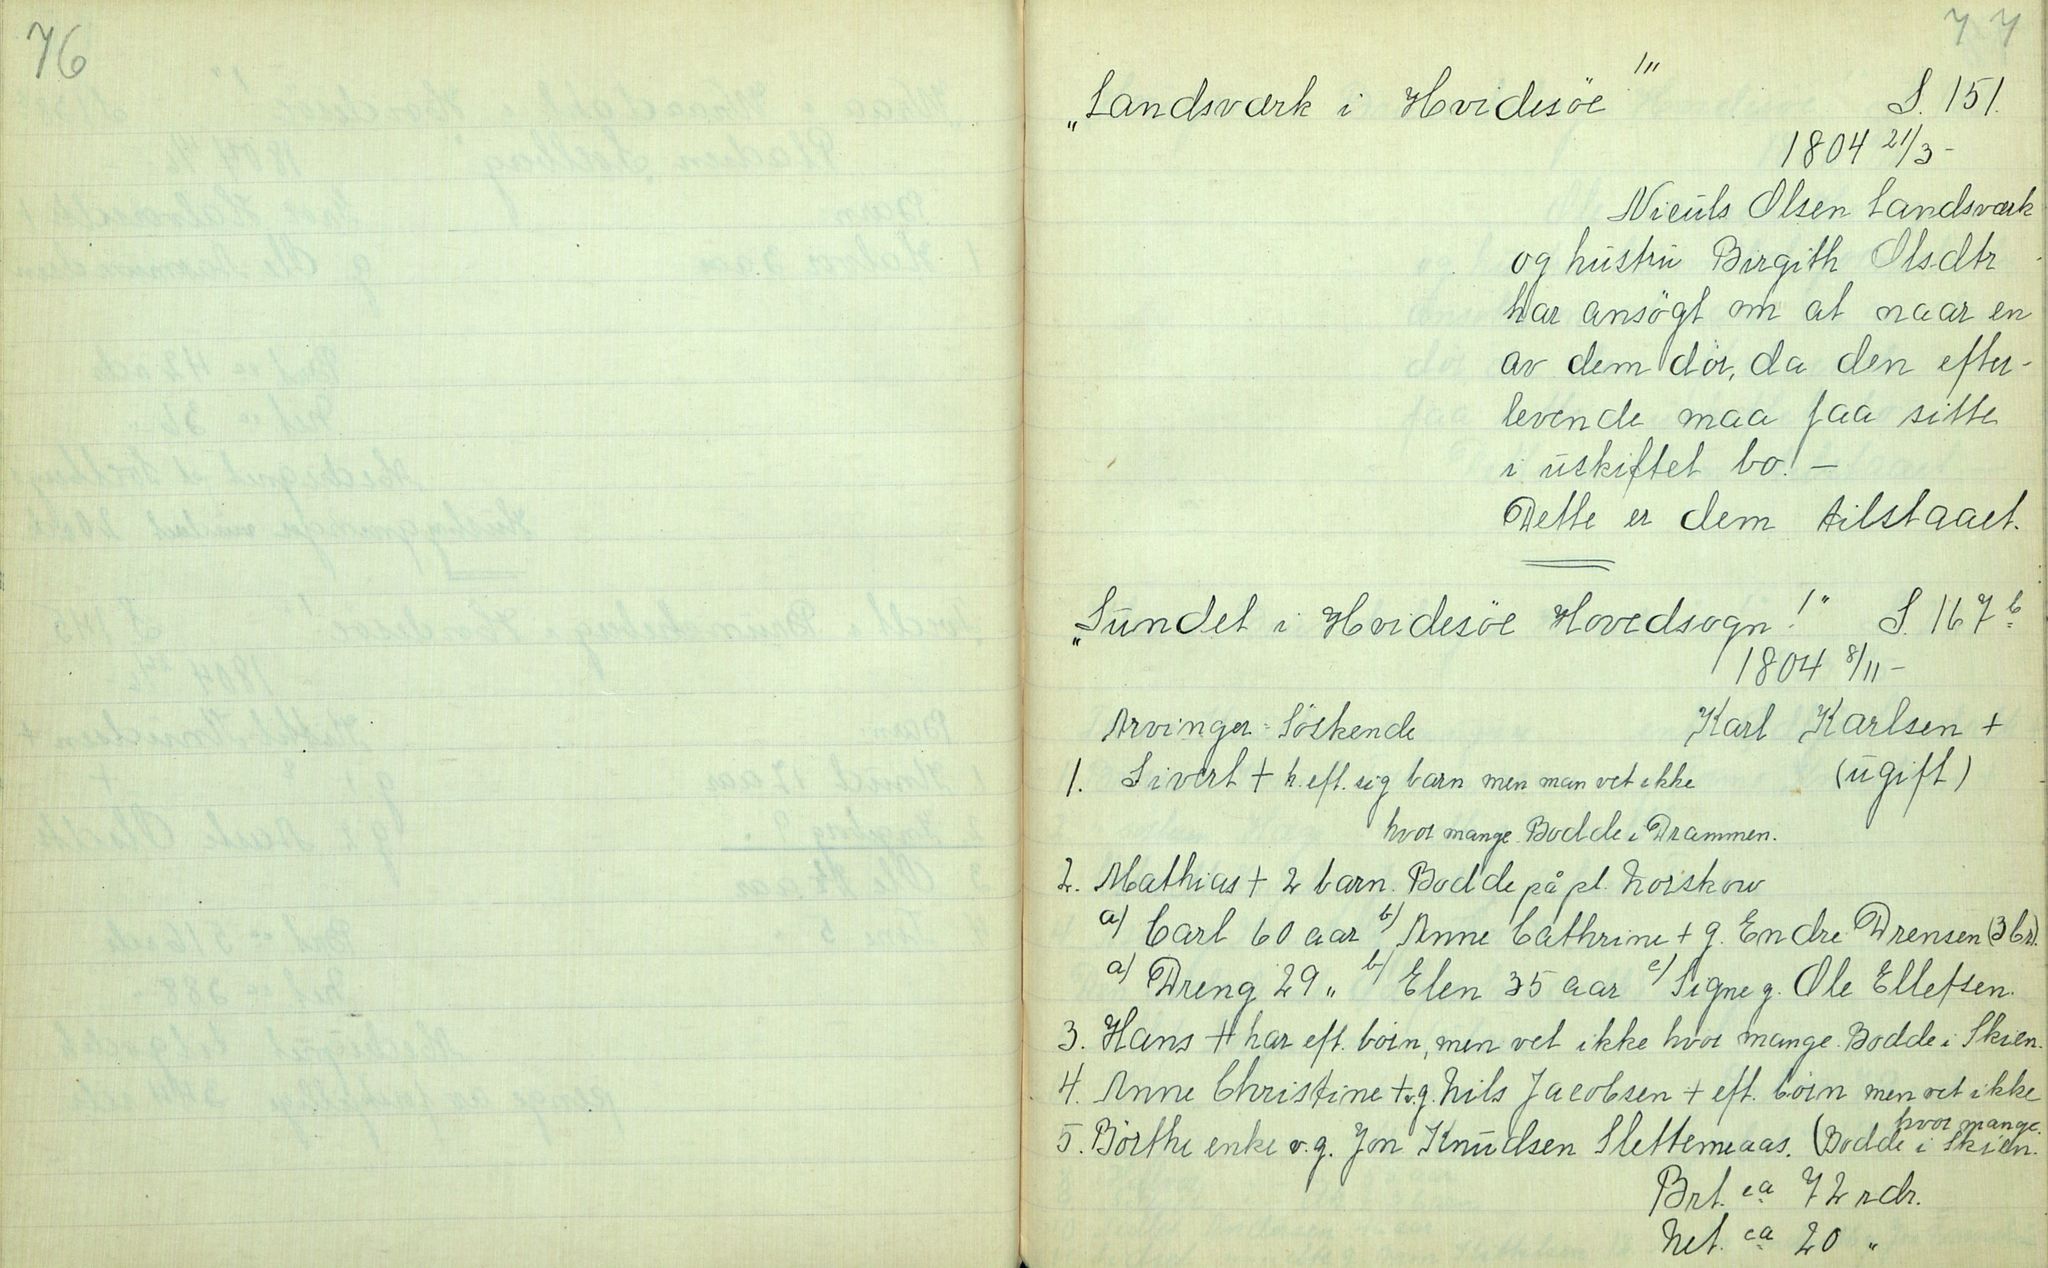 76
77
„Landsværk i Hvidesöe!" S. 151.
1804 21/3 -
Niculs Olsen Landsværk
og hustru Birgith Olsdtr.
har ansögt om at naar en
av dem dör, da den efter-
levende maa faa sitte
i uskiftet bo! -
Dette er dem tilstaaet.
„Sundet i Hvidesöe Hovedsogn!" S. 167b
1804 8/11 -
Arvinger: Söskende Karl Karlsen +
1. Sivert + h. eft. sig barn men man vet ikke (ugift)
hvor mange. Bodde i Drammen.
2. Mathias + 2 barn. Bodde på pl. Norskow
a) Carl 60 aar b) Anne Cathrine + g. Endre Drensen (3 br).
a) Dreng 29 „ b) Elen 35 aar c) Signe g. Ole Ellefsen.
3. Hans + har eft. börn, men vet ikke hvor mange. Bodde i Skien.
4. Anne Christine + v.g. Nils Jacobsen + eft. börn men vet ikke
hvor mange.
5. Börthe enke v.g. Jon Knudsen Slettemeaas. (Bodde i Skien.
Brt. ca 72 rdr.
Net. ca 20 „